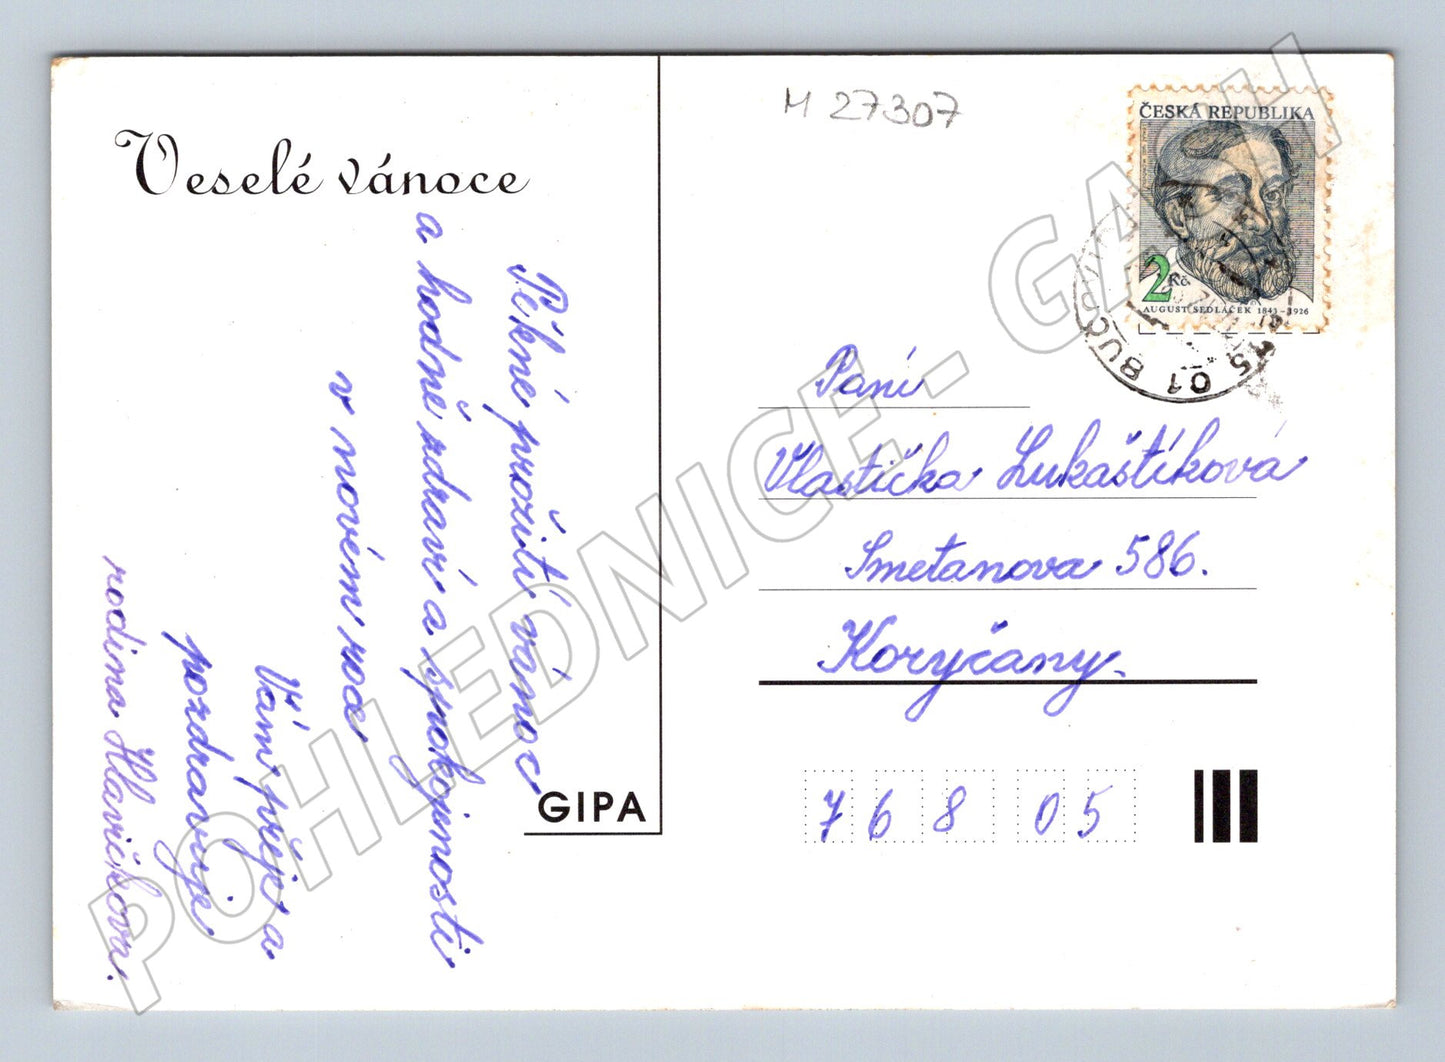 Veselé vánoce
Pěkné prožití vánoc
a hodně zdraví a spokojenosti
v novém roce
Vám přeje a
pozdravuje
rodina Hlavičkova.
GIPA
M 27307
ČESKÁ REPUBLIKA
2 Kč
AUGUST SEDLÁČEK 1843 – 1926
01 BUČOV
Paní
Vlastička Lukaštíková
Smetanova 586.
Koryčany.
768 05
POHLEDNICE - GASH